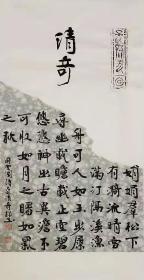 清奇
娟娟群松下
有漪流晴雪
滿汀隔溪漁
舟可人如玉步屧
尋幽載瞻載止空碧
悠悠神出古異澹不
可收如月之曙如氣
之秋